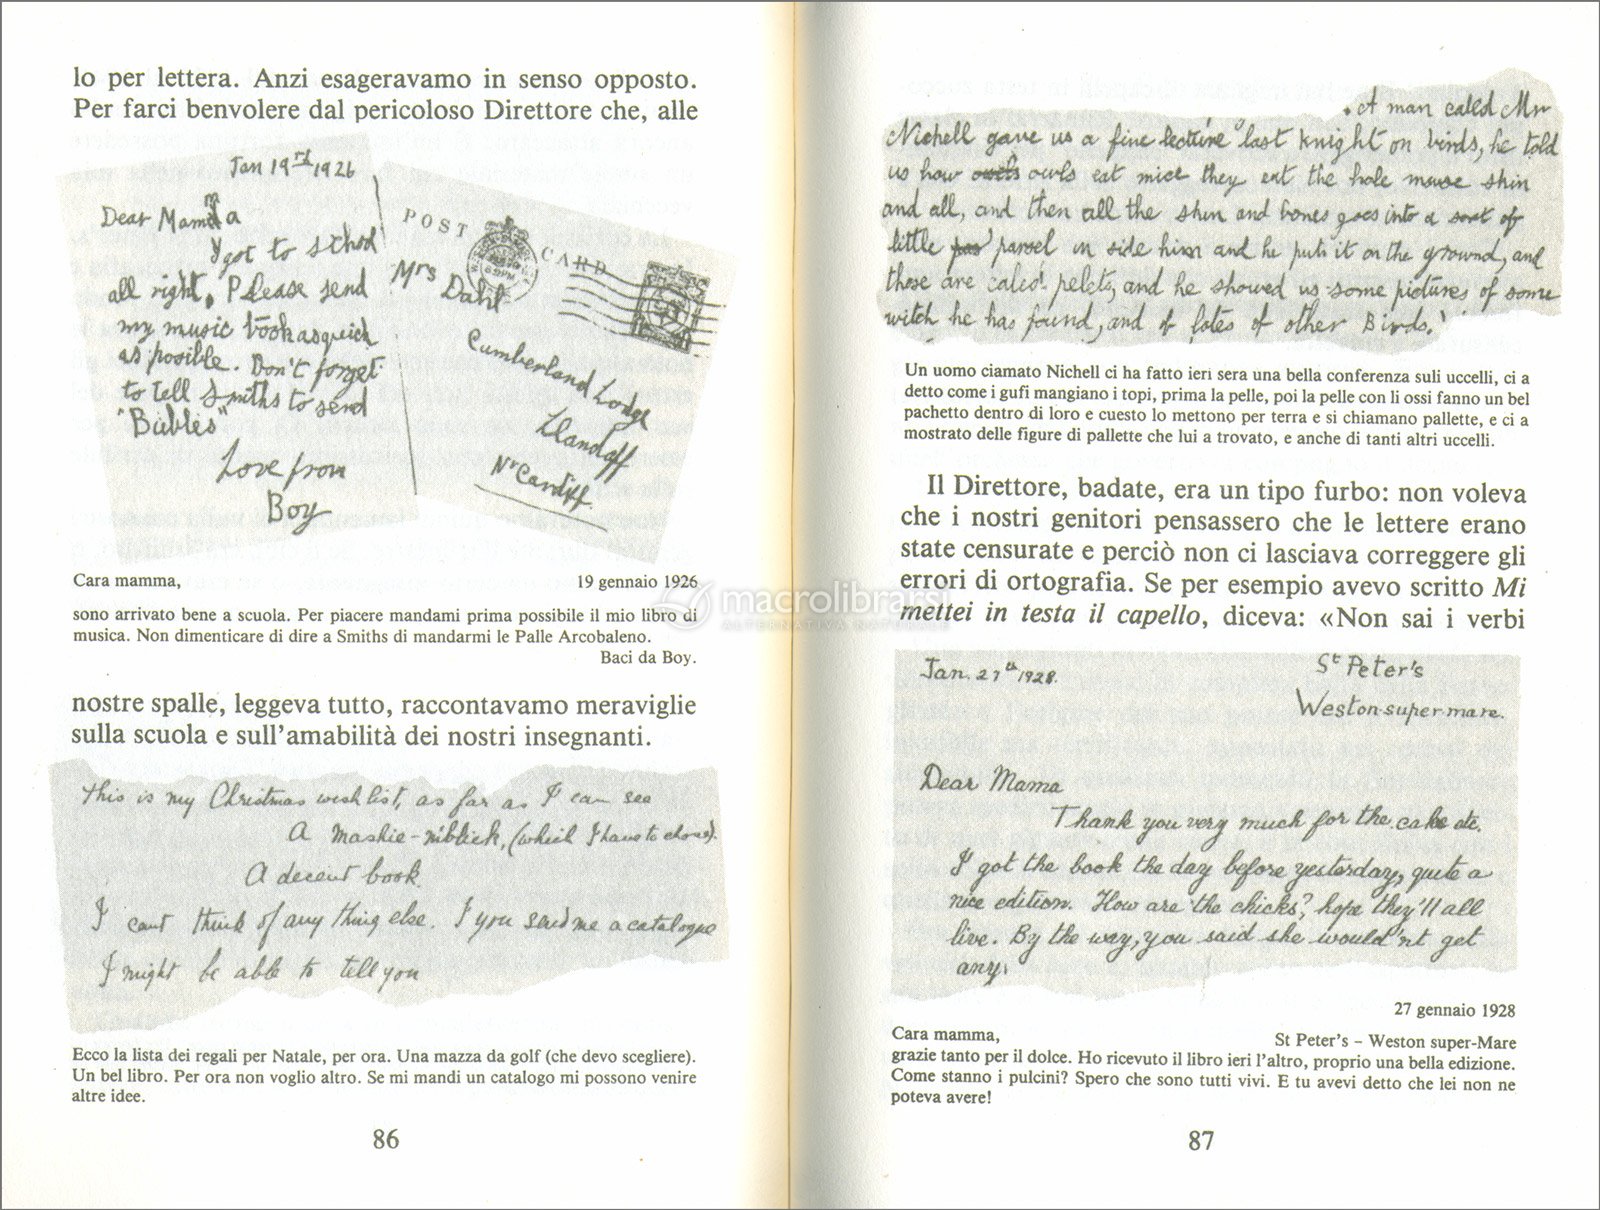 lo per lettera. Anzi esageravamo in senso opposto.
Per farci benvolere dal pericoloso Direttore che, alle
Jan 19rd 1926
Dear Mamma
I got to school
all right. Please send
my music book as quick
as posible. Don't forget
to tell Smiths to send
"Bubles"
Love from
Boy
POST CARD
Mrs Dahl
Cumberland Lodge
Llandaff
Nr Cardiff
Cara mamma, 19 gennaio 1926
sono arrivato bene a scuola. Per piacere mandami prima possibile il mio libro di
musica. Non dimenticare di dire a Smiths di mandarmi le Palle Arcobaleno.
Baci da Boy.
nostre spalle, leggeva tutto, raccontavamo meraviglie
sulla scuola e sull'amabilità dei nostri insegnanti.
This is my Christmas wish list, as far as I can see
A mashie-niblick, (which I have to chose).
A decent book.
I cant think of any thing else. I you send me a catalogue
I might be able to tell you
Ecco la lista dei regali per Natale, per ora. Una mazza da golf (che devo scegliere).
Un bel libro. Per ora non voglio altro. Se mi mandi un catalogo mi possono venire
altre idee.
86
A man caled Mr
Nichell gave us a fine lecture last knight on birds, he told
us how owls eat mice they eat the hole mouse skin
and all, and then all the skin and bones goes into a sort of
little parsel in side him and he puts it on the ground, and
those are caled pelets, and he showed us some pictures of some
witch he has found, and of lotes of other Birds.'
Un uomo ciamato Nichell ci ha fatto ieri sera una bella conferenza suli uccelli, ci a
detto come i gufi mangiano i topi, prima la pelle, poi la pelle con li ossi fanno un bel
pachetto dentro di loro e cuesto lo mettono per terra e si chiamano pallette, e ci a
mostrato delle figure di pallette che lui a trovato, e anche di tanti altri uccelli.
Il Direttore, badate, era un tipo furbo: non voleva
che i nostri genitori pensassero che le lettere erano
state censurate e perciò non ci lasciava correggere gli
errori di ortografia. Se per esempio avevo scritto Mi
mettei in testa il capello, diceva: «Non sai i verbi
macrolibrarsi
ALTERNATIVA NATURALE
Jan. 27th 1928.
St Peter's
Weston-super-mare.
Dear Mama
Thank you very much for the cake etc.
I got the book the day before yesterday, quite a
nice edition. How are the chicks? hope they'll all
live. By the way, you said she would'nt get
any.
27 gennaio 1928
Cara mamma, St Peter's – Weston super-Mare
grazie tanto per il dolce. Ho ricevuto il libro ieri l'altro, proprio una bella edizione.
Come stanno i pulcini? Spero che sono tutti vivi. E tu avevi detto che lei non ne
poteva avere!
87